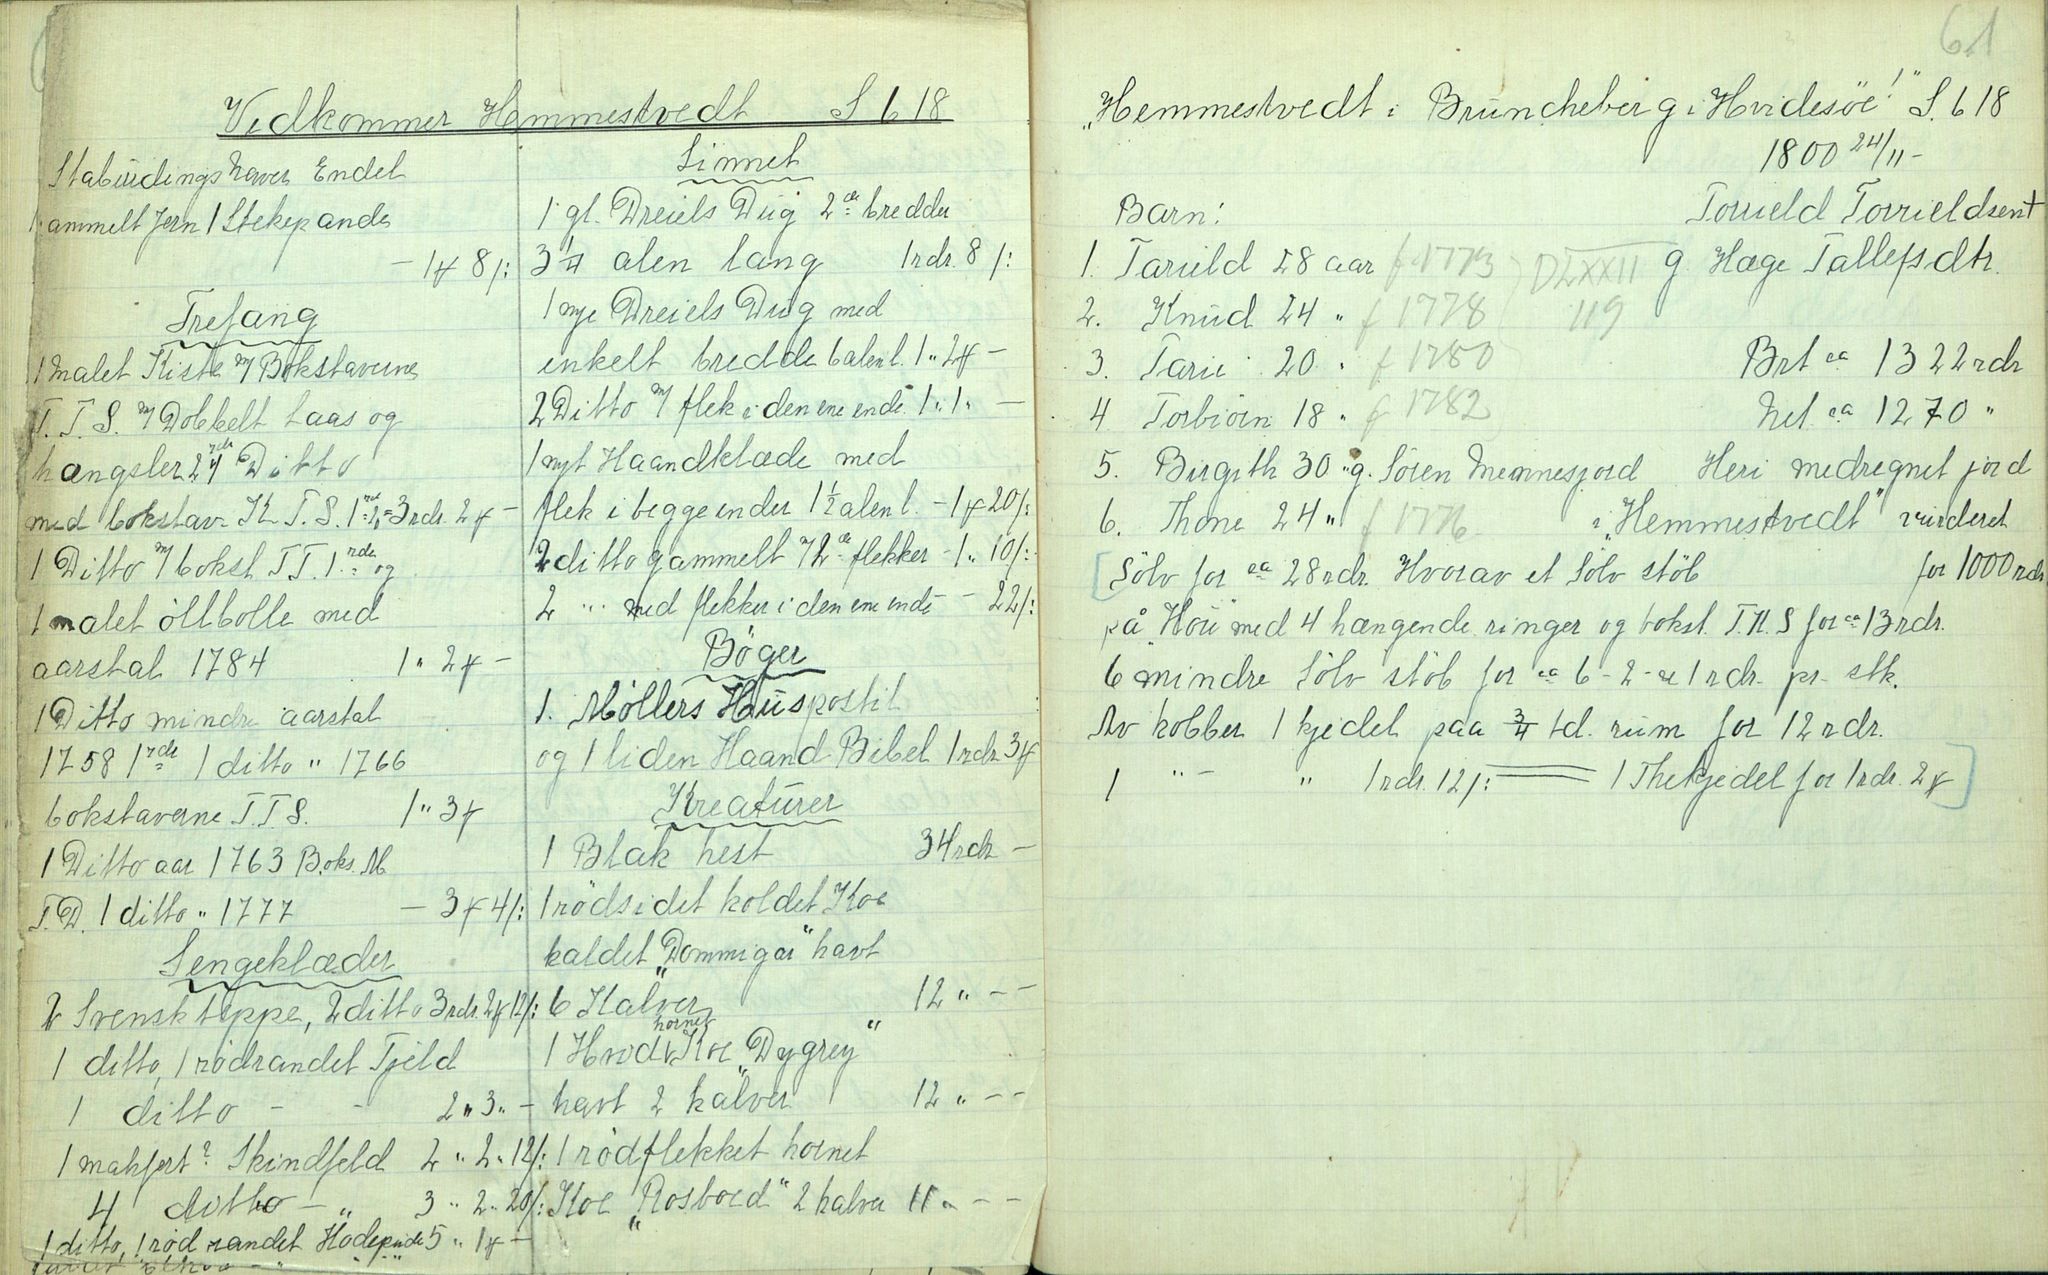 Vedkommer Hemmestvedt S 618
Stabuidings haver Endel
ammelt Jern 1 Stekepande
- 1 ƒ 8 /:
Trefang
1 malet Kiste m/ Bokstaverne
T. T. S. m/ Dobbelt Laas og
hængsler 2 rdr 4 Ditto
med bokstav. K T. S. 3 rdr. 2 ƒ -
1 Ditto m/ bokst T T. 1 rdr og
1 malet öllbolle med
aarstal 1784 1 " 2 ƒ -
1 Ditto mindre aarstal
1758 1 rdr 1 ditto " 1766
bokstaverne T. T S. 1 " 3 ƒ
1 Ditto aar 1763 Boks. M
T. D. 1 ditto " 1777 - 3 ƒ 4 /:
Sengeklæder
2 Svensk teppe, 2 ditto 3 rdr. 2 ƒ 12 /:
1 ditto, 1 rödrandet Tjeld
1 ditto - - 2 " 3 " -
1 makfert? Skindfeld 2 " 2 " 12 /:
4 ditto - " 3 " 2 " 20 /:
1 ditto, 1 rød randet Hodepude 5 " 1 ƒ -
Linnet
1 gl. Dreiels Dug 2de bredder
3 1/4 alen lang 1 rdr. 8 /:
1 nye Dreiels Dug med
enkelt bredde 6 alen l. 1 " 2 ƒ -
2 Ditto m/ flek i den ene ende 1 " 1 " -
1 nyt Haandklæde med
flek i begge ender 1 1/2 alen l. - 1 ƒ 20 /:
2 ditto gammelt m/ 2de flekker - 1 " 10 /: -
2 " - med flekker i den ene ende - 22 /:
Böger
1. Möllers Huspostil
og 1 liden Haand Bibel 1 rdr 3 ƒ
Kreaturer
1 Blak hest 34 rdr -
1 rödsidet koldet Koe
kaldet "Dommigai" havt
6 Kalver 12 " - -
1 Hvid hornet Koe "Dygrey"
havt 2 kalver 12 " - -
1 rödflekket hornet
Koe "Rosboed" 2 kalver 11 " - -
61
"Hemmestvedt i Bruncheberg i Hvidesöe!" S. 618
1800 24/11 -
Barn: Torrield Torrieldsen +
1. Tarield 28 aar f 1773 DLXXII g. Hæge Tallefsdtr.
2. Knud 24 " f 1778 119
3. Tarie 20 " f 1780 Brt ca 1322 rdr
4 Torbiörn 18 " f 1782 Net. ca 1270 "
5. Birgith 30 " g. Sören Mennesfjord Heri medregnet jord
6. Thone 24 " f 1776 i "Hemmestvedt" vurderet
[Sölv for ca 28 rdr Hvorav et Sölv stöb for 1000 rdr
på "Hou" med 4 hængende ringer og bokst. T. K. S for ca 13 rdr.
6 mindre Sölv stöb for ca 6 - 2 - a 1 rdr. pr. stk.
Av kobber 1 kjedel paa 3/4 td. rum for 12 rdr.
1 " - " 1 rdr. 12 /: 1 Thekjedel for 1 rdr. 2 ƒ]